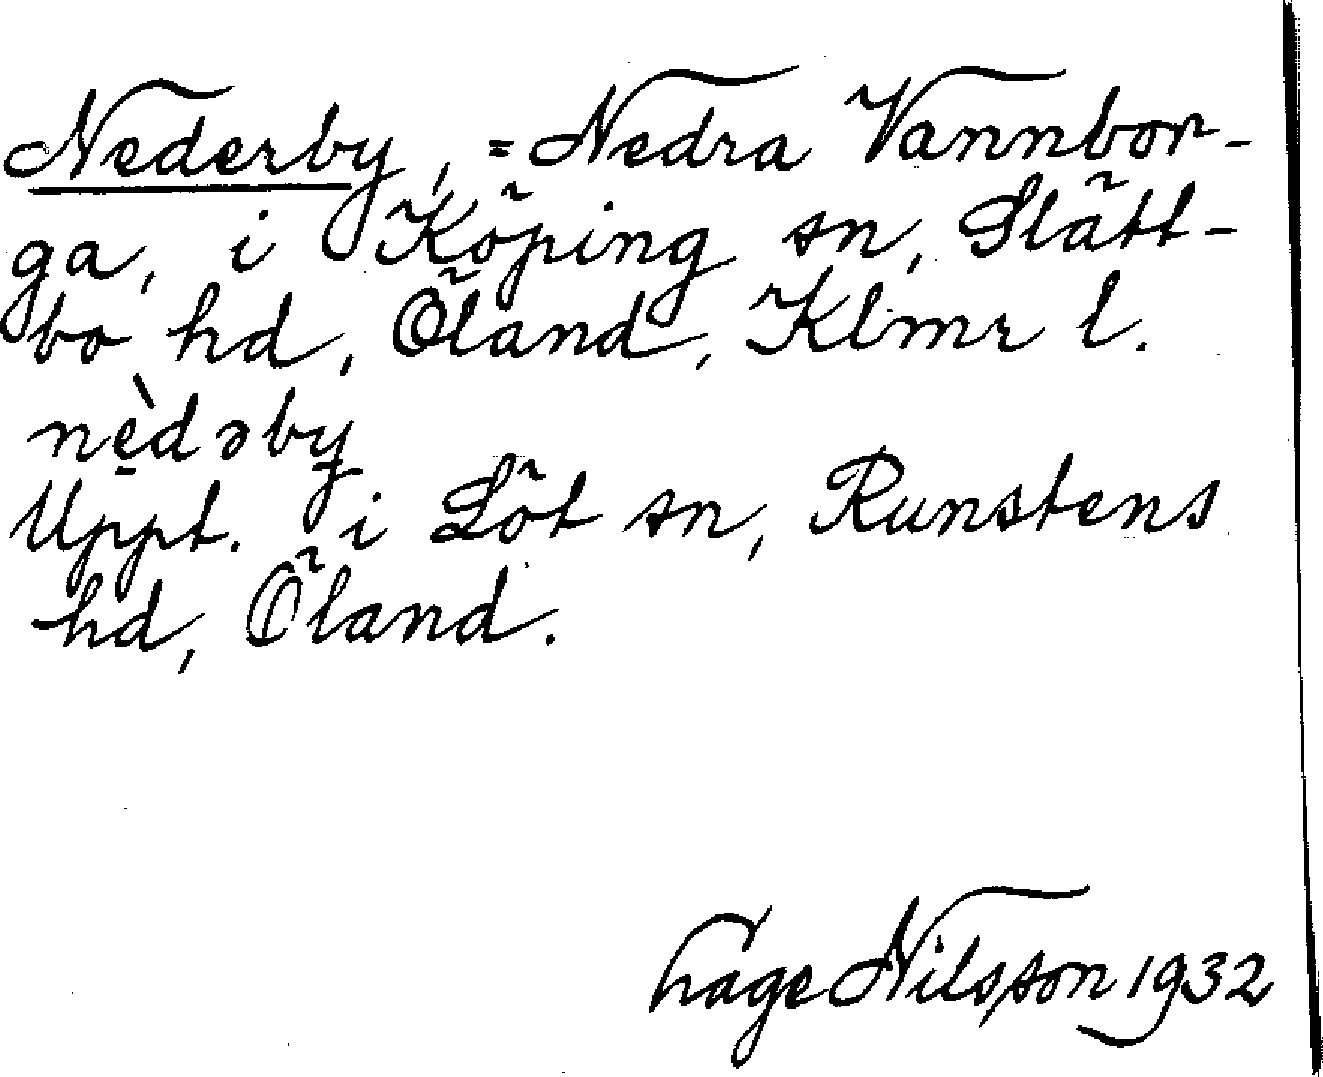 Nederby, = Nedra Vannbor-
ga, i Köping sn, Slätt-
bo hd, Öland, Klmr l.
nèdəby
Uppt. i Löt sn, Runstens
hd, Öland.
Hage Nilsson 1932